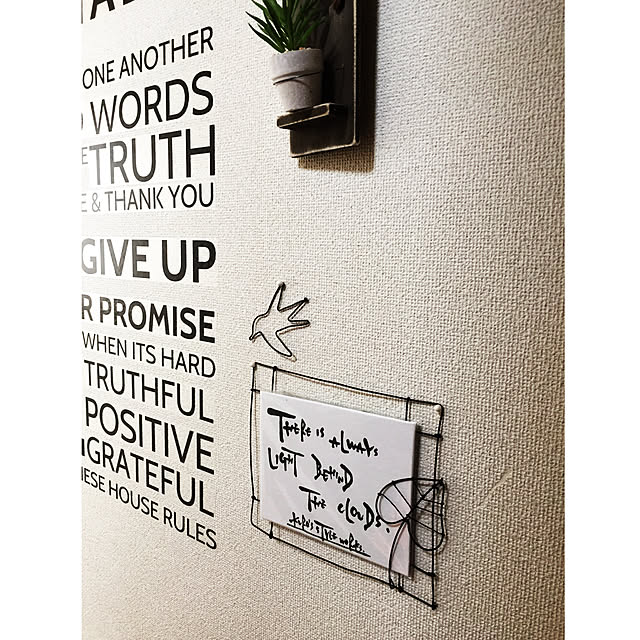 ONE ANOTHER
WORDS
TRUTH
& THANK YOU
GIVE UP
R PROMISE
WHEN ITS HARD
TRUTHFUL
POSITIVE
GRATEFUL
HOUSE RULES
THERE IS ALWAYS
LIGHT BEHIND
THE CLOUDS.